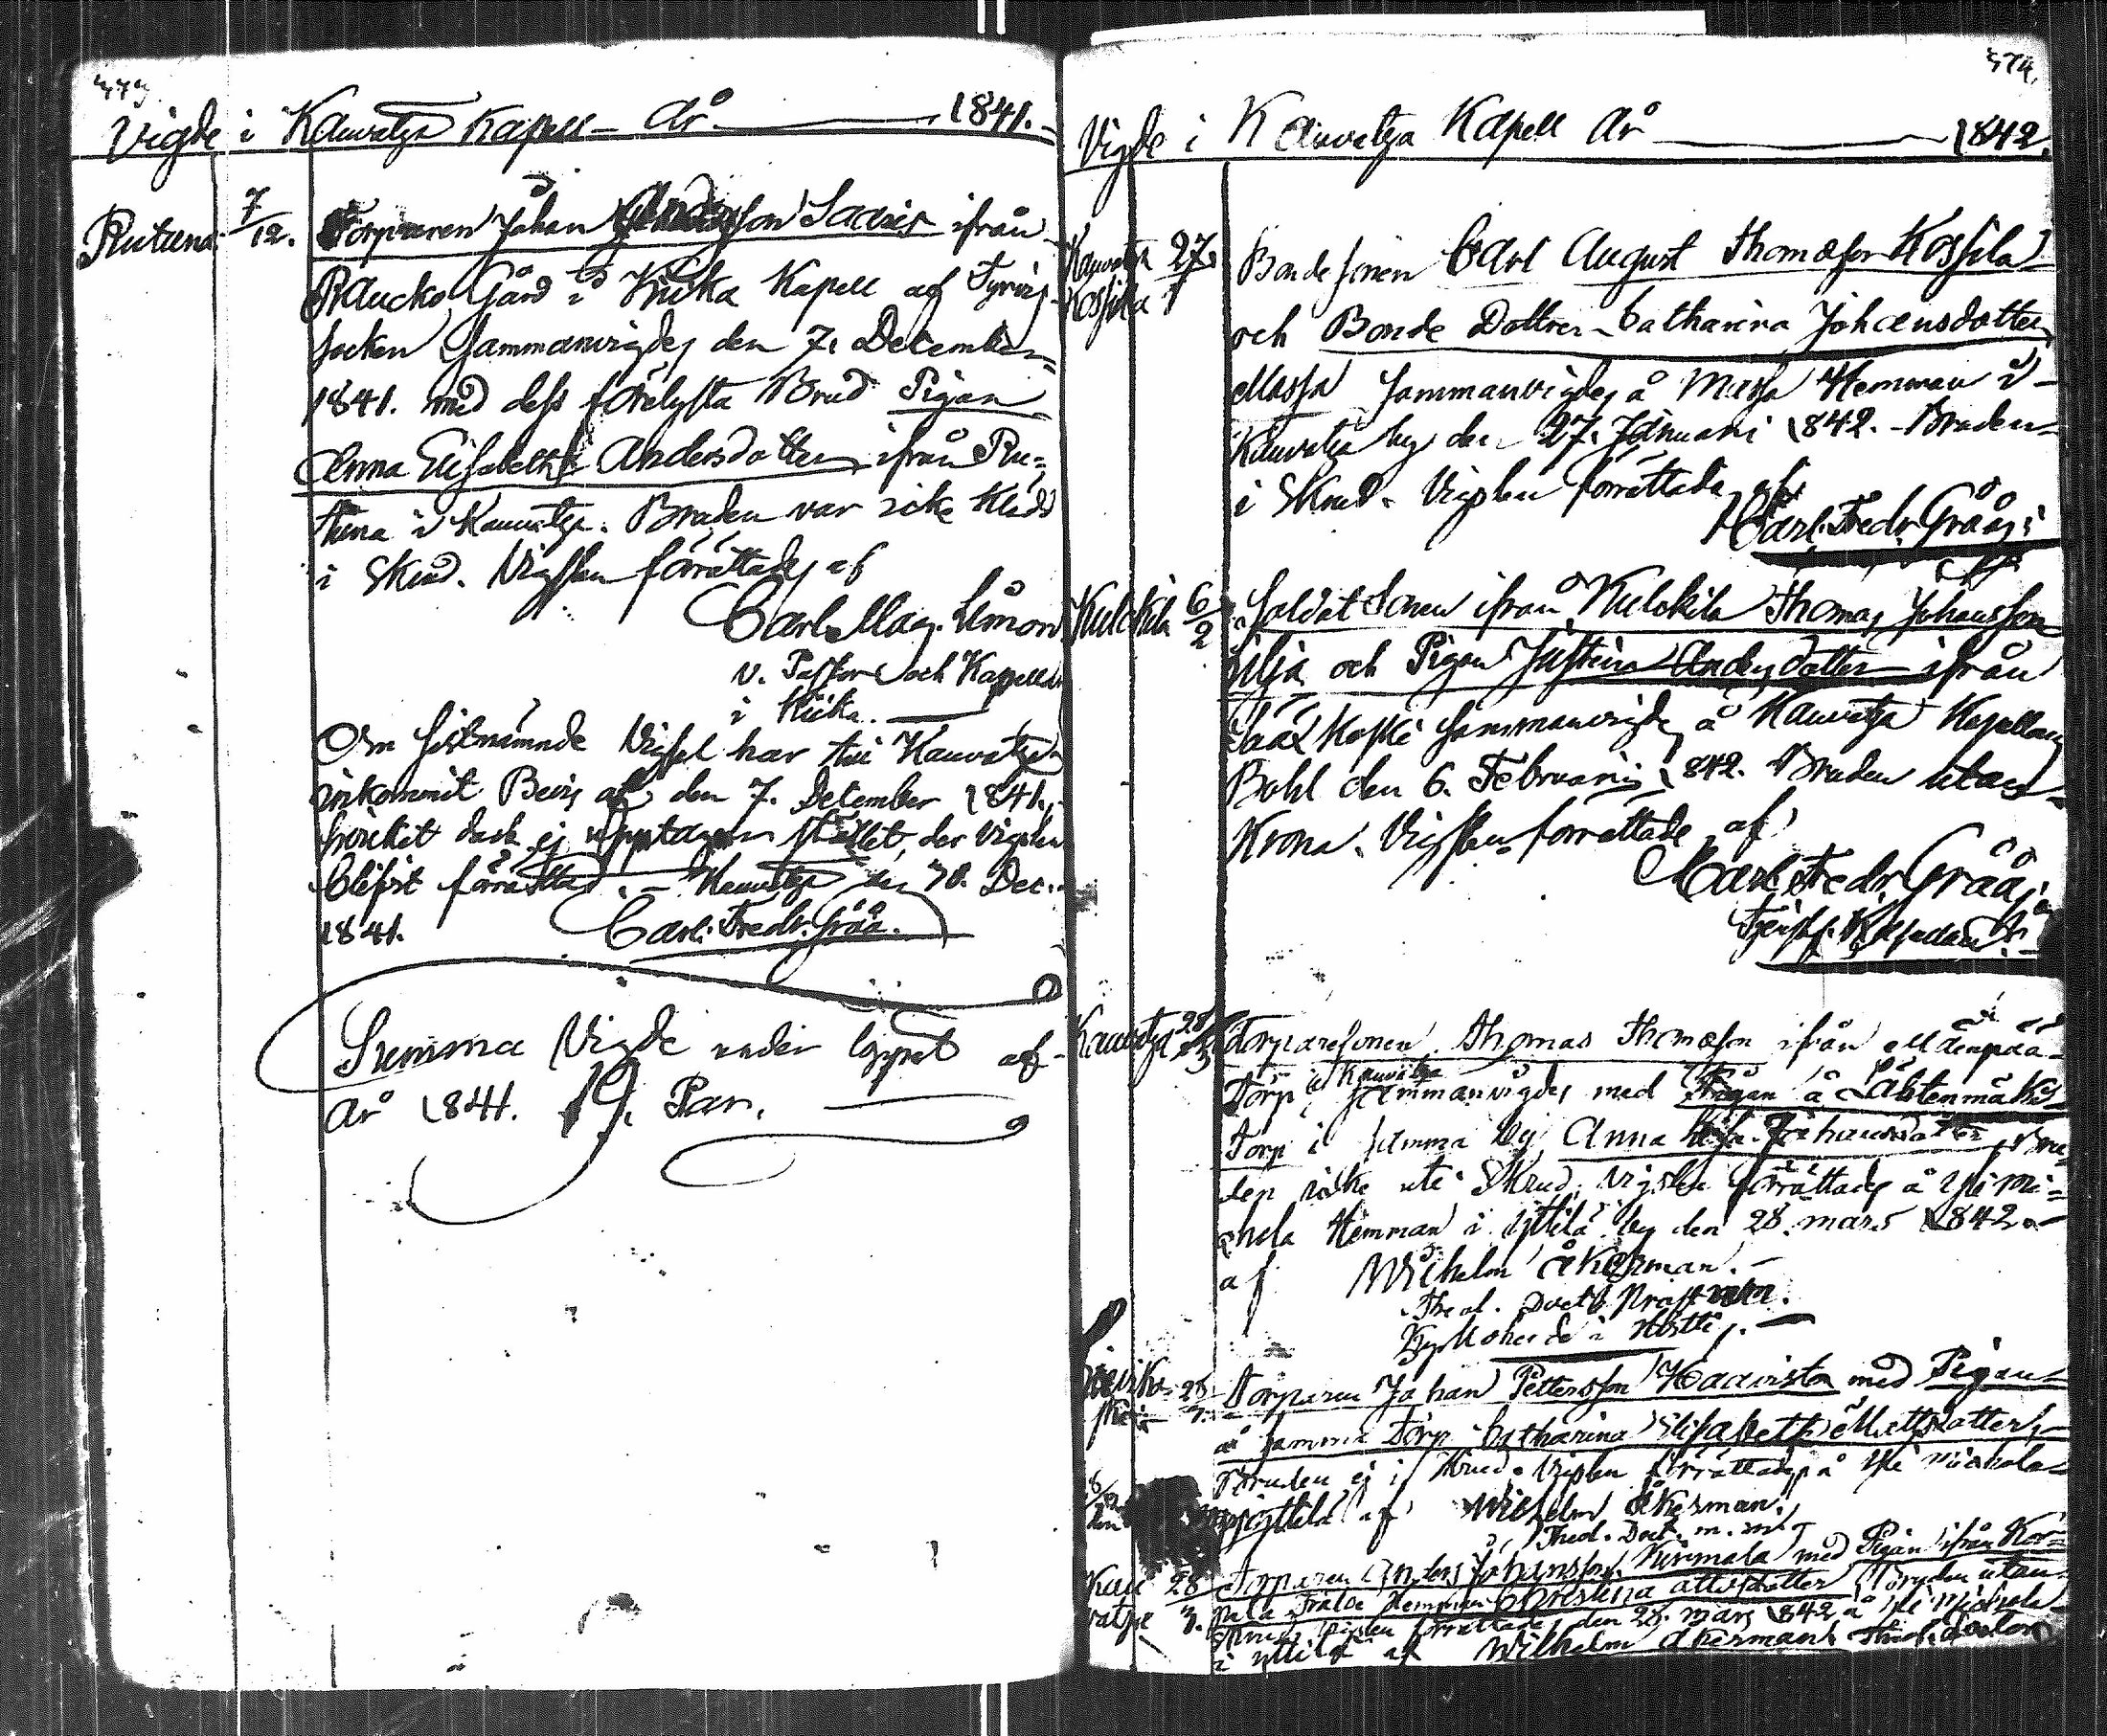 373.
Vigde i Kauvatsa Kapell År 1841.
Rutuna 7/12. Torparen Johan Andersson Saaris ifrån
Raucko Gård i Kiika Kapell af Tyrvis
socken sammanvigdes den 7. December
1841. med dess förelysta Brud Pigan
Anna Elisabeth Andersdotter ifrån Ru=
tuna i Kauvatsa. Bruden var icke klädd
i Skrud. Vigseln förrättades af
Carl Mag. Limon
v. Pastor och Kapellan
i Kiika.
Om sistnämnde Vigsel har till Kauvatsa
inkommit Bevis af den 7. December 1841.,
hvilket dock ej upptager stället, der Vigseln
blifvit förrättad. – Kauvatsa den 30. Dec.
1841. Carl Fredr. Gråå.
Summa Vigde under loppet af
År 1841. 19. Par.
374.
Vigde i Kauvatsa Kapell År 1842.
Kauvatsa Kossila 27/1 Bondesonen Carl August Thomasson Kossila
och Bonde Dottren Catharina Johansdotter
Massa sammanvigdes å Massa Hemman i
Kauvatsa by den 27. Januari 1842. Bruden
i Skrud. Vigseln förrättade af
Carl Fredr. Gråå;
Kulckila 6/2 Soldat Sonen ifrån Kulckila Thomas Johansson
Lilja och Pigan Justina Andersdotter ifrån
Sääxkoski sammanvigdes å Kauvatsa Kapellans
Bohl den 6. Februarii 1842. Bruden utan
Krona. Vigseln förrättade af
Carl Fredr. Gråå;
Kauvatsa 28/3 Torparesonen Thomas Thomasson ifrån Mäenpää
Torp i Kauvatsa sammanvigdes med Pigan å Lähtenmäki
Torp i samma by Anna Johansdotter, Bru=
den icke uti Skrud. Vigseln förrättades å Yli Mi=
chola Hemman i Yttilä by den 28. mars 1842
af Wilhelm Åkerman.
Theol. Doct. Prost m.m.
Kyrkoherde i Hvittis.
28/3 Torparen Johan Pettersson Haavisto med Pigan
å samma Torp Catharina Elisabeth Mattsdotter,
Bruden ej i Skrud. Vigseln förrättades på Yli Michola
i Yttilä af Wilhelm Åkerman.
Theol. Doct. m.m.
Kauvatsa 28/3. Torparen Anders Johansson Kurimala med Pigan ifrån Kor=
pela Hemman Christina Mattsdotter, Bruden utan
Skrud, Vigseln förrättades den 28. mars 1842 å Yli Michola
i Yttilä af Wilhelm Åkerman Theol. doctor